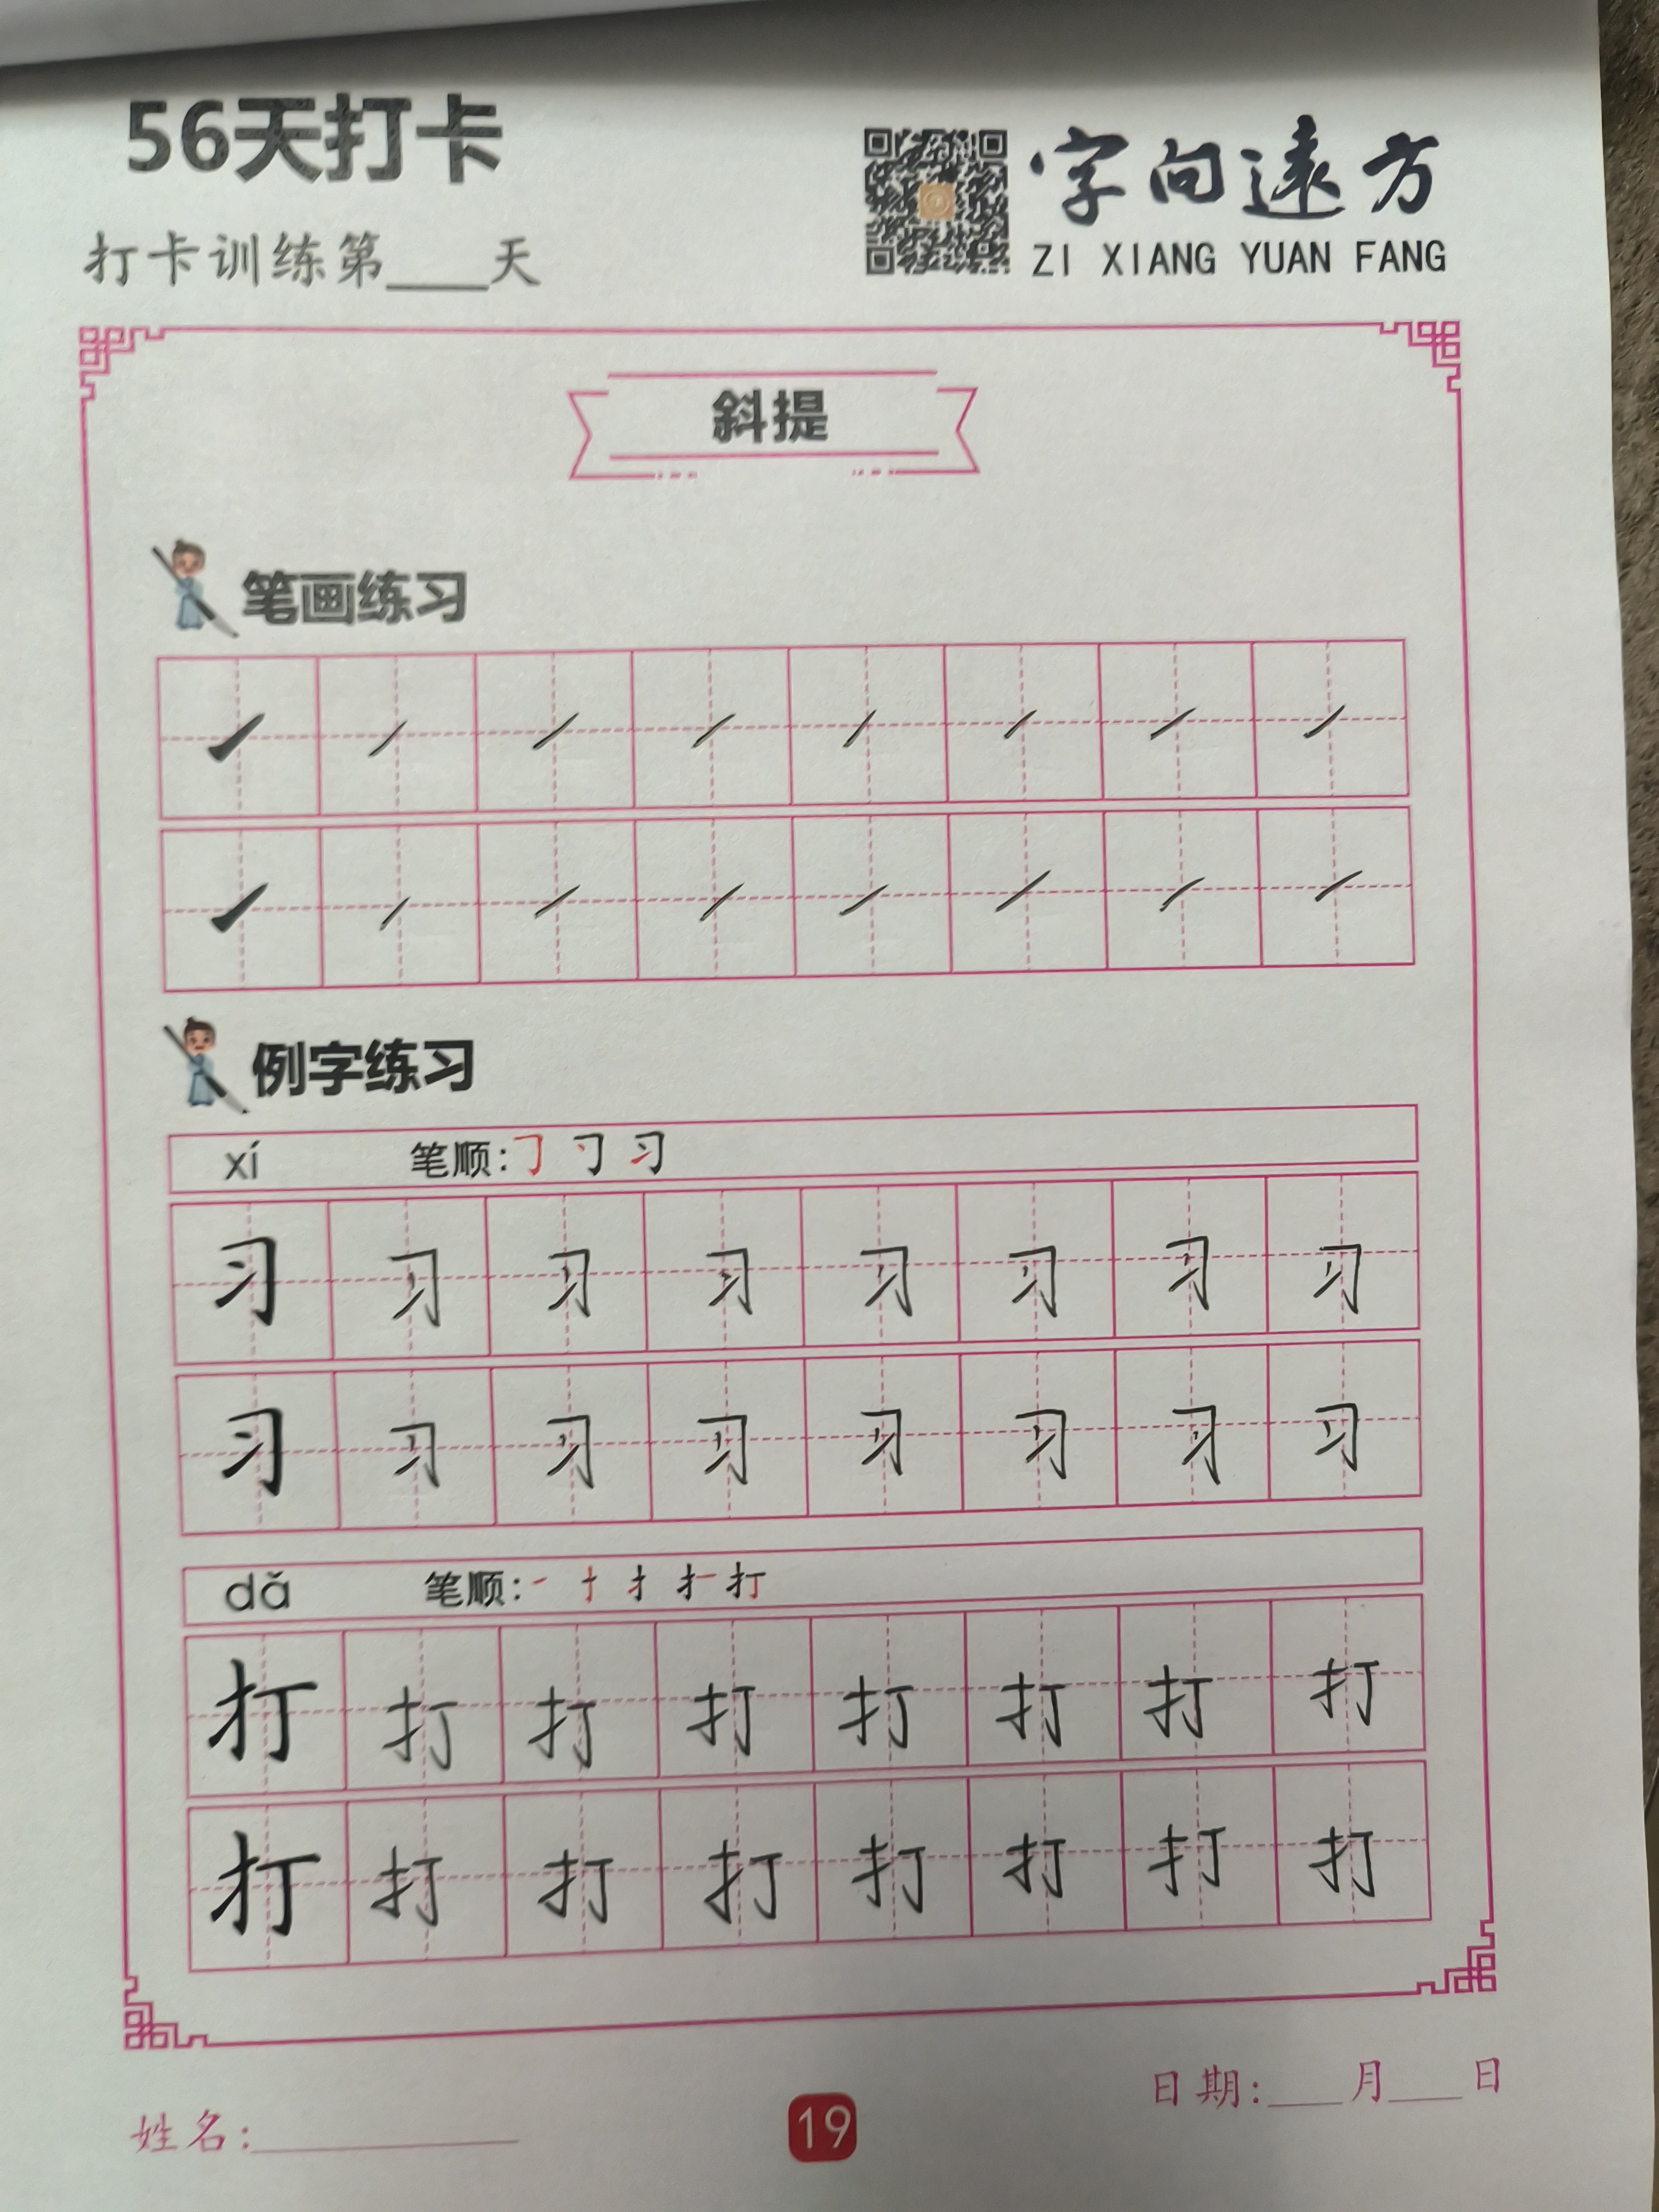 56天打卡
打卡训练第____天
字向远方
ZI XIANG YUAN FANG
斜提
笔画练习
例字练习
xí 笔顺:㇆ 刁 习
习 习 习 习 习 习 习 习
习 习 习 习 习 习 习 习
dǎ 笔顺:一 十 扌 扌一 打
打 打 打 打 打 打 打 打
打 打 打 打 打 打 打 打
姓名:________
19
日期:___月___日